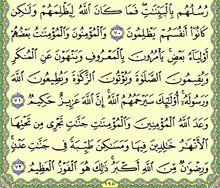 رُسُلُهُم بِالْبَيِّنَاتِ فَمَا كَانَ اللَّهُ لِيَظْلِمَهُمْ وَلَٰكِن
كَانُوا أَنفُسَهُمْ يَظْلِمُونَ ٧٠ وَالْمُؤْمِنُونَ وَالْمُؤْمِنَاتُ بَعْضُهُمْ
أَوْلِيَاءُ بَعْضٍ يَأْمُرُونَ بِالْمَعْرُوفِ وَيَنْهَوْنَ عَنِ الْمُنكَرِ
وَيُقِيمُونَ الصَّلَوٰةَ وَيُؤْتُونَ الزَّكَوٰةَ وَيُطِيعُونَ اللَّهَ
وَرَسُولَهُ أُولَٰئِكَ سَيَرْحَمُهُمُ اللَّهُ إِنَّ اللَّهَ عَزِيزٌ حَكِيمٌ ٧١
وَعَدَ اللَّهُ الْمُؤْمِنِينَ وَالْمُؤْمِنَاتِ جَنَّاتٍ تَجْرِي مِن تَحْتِهَا
الْأَنْهَارُ خَالِدِينَ فِيهَا وَمَسَاكِنَ طَيِّبَةً فِي جَنَّاتِ عَدْنٍ
وَرِضْوَانٌ مِّنَ اللَّهِ أَكْبَرُ ذَٰلِكَ هُوَ الْفَوْزُ الْعَظِيمُ ٧٢
١٩٨